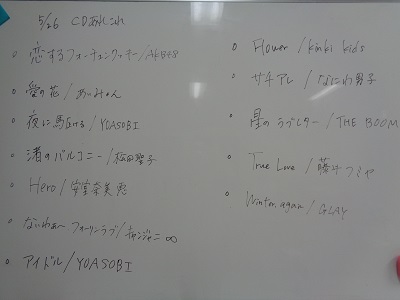 5/26 CDあれこれ
恋するフォーチュンクッキー/AKB48
愛の花/あいみょん
夜に駆ける/YOASOBI
渚のバルコニー/松田聖子
Hero/安室奈美恵
ないわぁ〜フォーリンラブ/キャンジャニ∞
アイドル/YOASOBI
Flower/kinki kids
サチアレ/なにわ男子
星のラブレター/THE BOOM
True Love/藤井フミヤ
Winter, again/GLAY